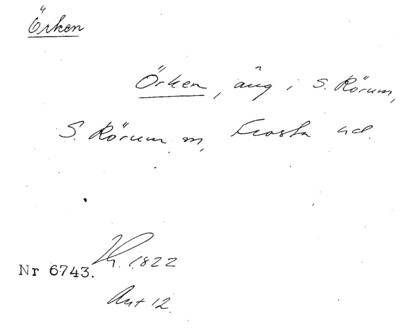 Örken
Örken, äng i S. Rörum,
S. Rörum sn, Frosta hd.
Nr 6743. 1822
Ant 12.